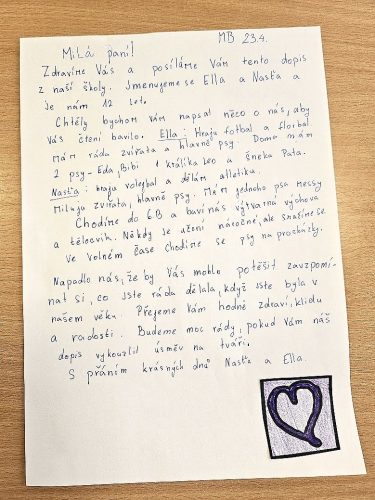 MB 23.4.
Milá paní!
Zdravíme Vás a posíláme Vám tento dopis
z naší školy. Jmenujeme se Ella a Nasťa a
je nám 12 let.
Chtěly bychom Vám napsat něco o nás, aby
Vás čtení bavilo. Ella: Hraju fotbal a florbal
Mám ráda zvířata a hlavně psy. Doma mám
2 psy - Eda, Bibi 1 králíka Leo a šneka Pata.
Nasťa: hraju volejbal a dělám atletiku.
Miluju zvířata, hlavně psy. Mám jednoho psa Messy
Chodíme do 6.B a baví nás výtvarná výchova
a tělocvik. Někdy je učení náročné, ale snažíme se
Ve volném čase chodíme se psy na procházky.
Napadlo nás, že by Vás mohlo potěšit zavzpomí-
nat si, co jste ráda dělala, když jste byla v
našem věku. Přejeme Vám hodně zdraví, klidu
a radosti. Budeme moc rády, pokud Vám náš
dopis vykouzlil úsměv na tváři.
S přáním krásných dnů Nasťa a Ella.